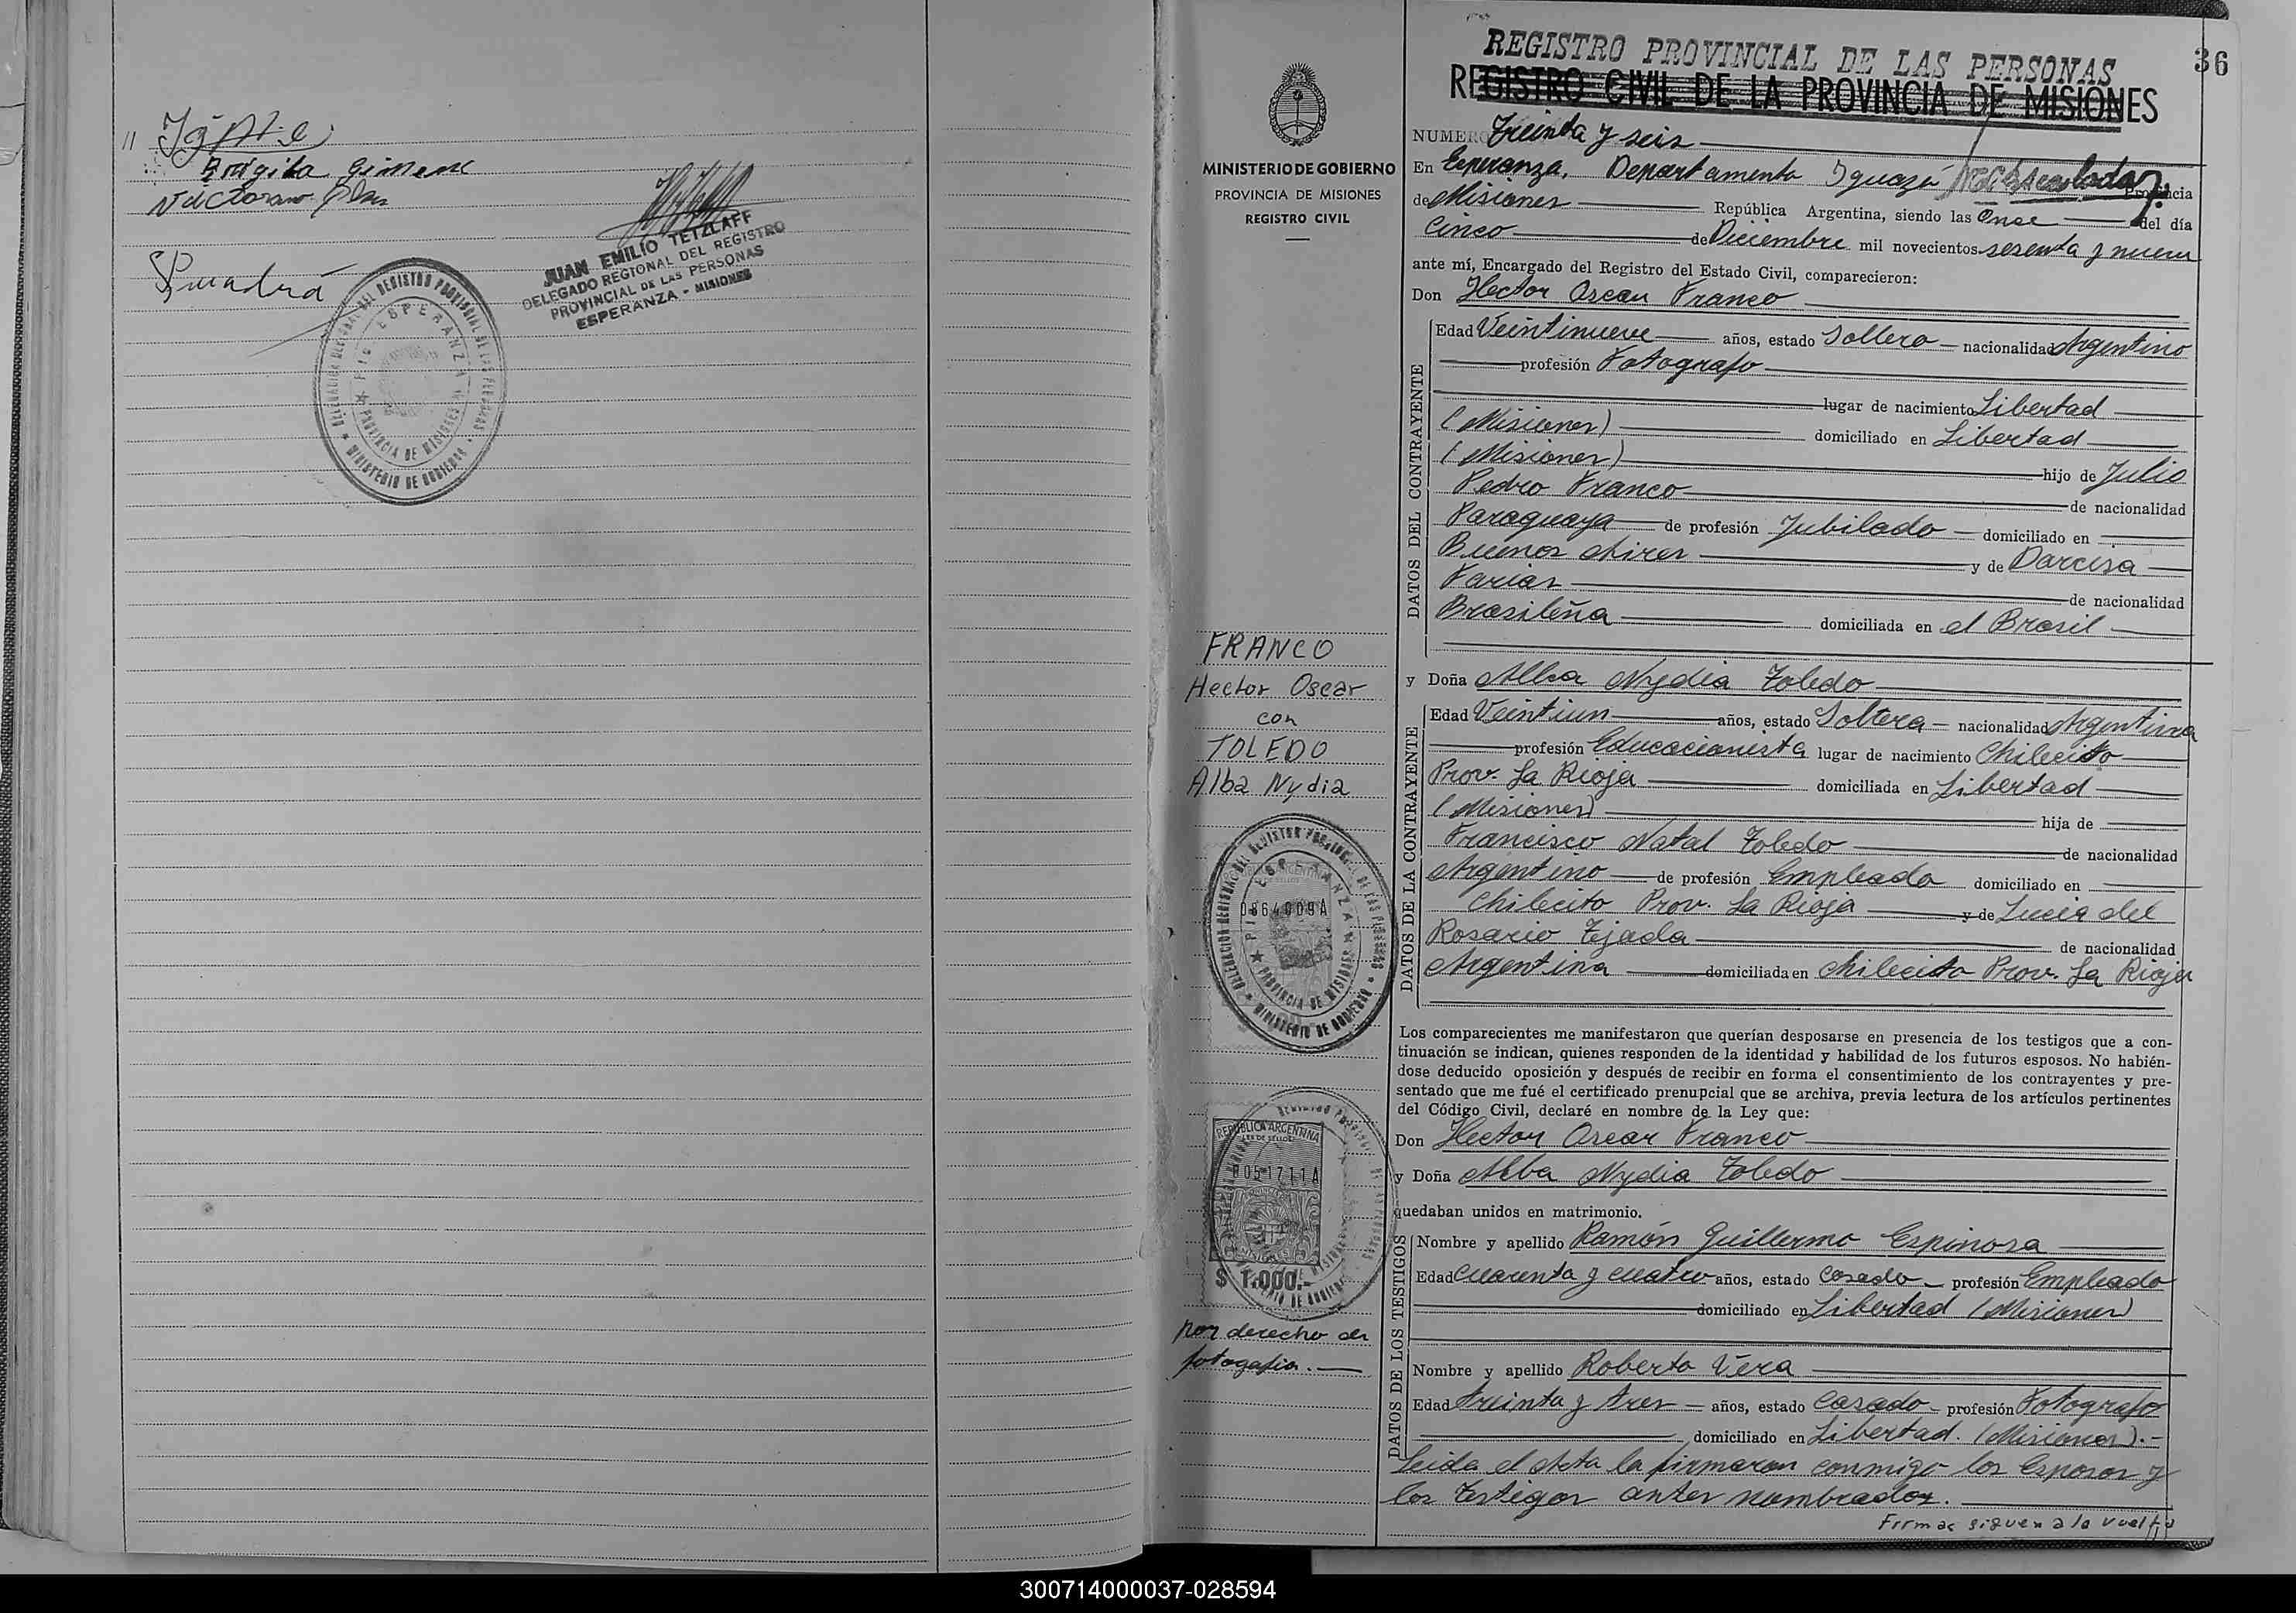 Brigida Gimene
JUAN EMILIO TETZLAFF
DELEGADO REGIONAL DEL REGISTRO
PROVINCIAL DE LAS PERSONAS
ESPERANZA - MISIONES
DELEGACION REGIONAL DEL REGISTRO PROVINCIAL DE LAS PERSONAS
ESPERANZA
PROVINCIA DE MISIONES
MINISTERIO DE GOBIERNO
MINISTERIO DE GOBIERNO
PROVINCIA DE MISIONES
REGISTRO CIVIL
FRANCO
Hector Oscar
con
TOLEDO
Alba Nydia
DELEGACION REGIONAL DEL REGISTRO PROVINCIAL DE LAS PERSONAS
ESPERANZA
0864009A
PROVINCIA DE MISIONES
MINISTERIO DE GOBIERNO
REPUBLICA ARGENTINA
LEY DE SELLOS
051711A
MISIONES
$ 1.000.-
por derecho de
fotogafia.
36
REGISTRO PROVINCIAL DE LAS PERSONAS
REGISTRO CIVIL DE LA PROVINCIA DE MISIONES
NUMERO Treinta y seis
En Esperanza, Departamento Iguazú Provincia
de Misiones República Argentina, siendo las Once del día
Cinco de Diciembre mil novecientos sesenta y nueve
ante mí, Encargado del Registro del Estado Civil, comparecieron:
Don Hector Oscar Franco
DATOS DEL CONTRAYENTE
Edad Veintinueve años, estado Soltero nacionalidad Argentino
profesión Fotografo
lugar de nacimiento Libertad
(Misiones) domiciliado en Libertad
(Misiones) hijo de Julio
Pedro Franco de nacionalidad
Paraguaya de profesión Jubilado domiciliado en
Buenos Aires y de Darcisa
Farias de nacionalidad
Brasileña domiciliada en el Brasil
y Doña Alba Nydia Toledo
DATOS DE LA CONTRAYENTE
Edad Veintiun años, estado Soltera nacionalidad Argentina
profesión Educacionista lugar de nacimiento Chilecito
Prov. La Rioja domiciliada en Libertad
(Misiones) hija de
Francisco Natal Toledo de nacionalidad
Argentino de profesión Empleado domiciliado en
Chilecito Prov. La Rioja y de Lucia del
Rosario Tejada de nacionalidad
Argentina domiciliada en Chilecito Prov. La Rioja
Los comparecientes me manifestaron que querían desposarse en presencia de los testigos que a con-
tinuación se indican, quienes responden de la identidad y habilidad de los futuros esposos. No habién-
dose deducido oposición y después de recibir en forma el consentimiento de los contrayentes y pre-
sentado que me fué el certificado prenupcial que se archiva, previa lectura de los artículos pertinentes
del Código Civil, declaré en nombre de la Ley que:
Don Hector Oscar Franco
y Doña Alba Nydia Toledo
quedaban unidos en matrimonio.
DATOS DE LOS TESTIGOS
Nombre y apellido Ramón Guillermo Espinosa
Edad cuarenta y cuatro años, estado casado profesión Empleado
domiciliado en Libertad (Misiones)
Nombre y apellido Roberto Vera
Edad treinta y tres años, estado casado profesión Fotografo
domiciliado en Libertad. (Misiones).-
Leida el Acta la firmaron conmigo los Esposos y
los testigos antes nombrados.
Firmas siguen a la vuelta
300714000037-028594